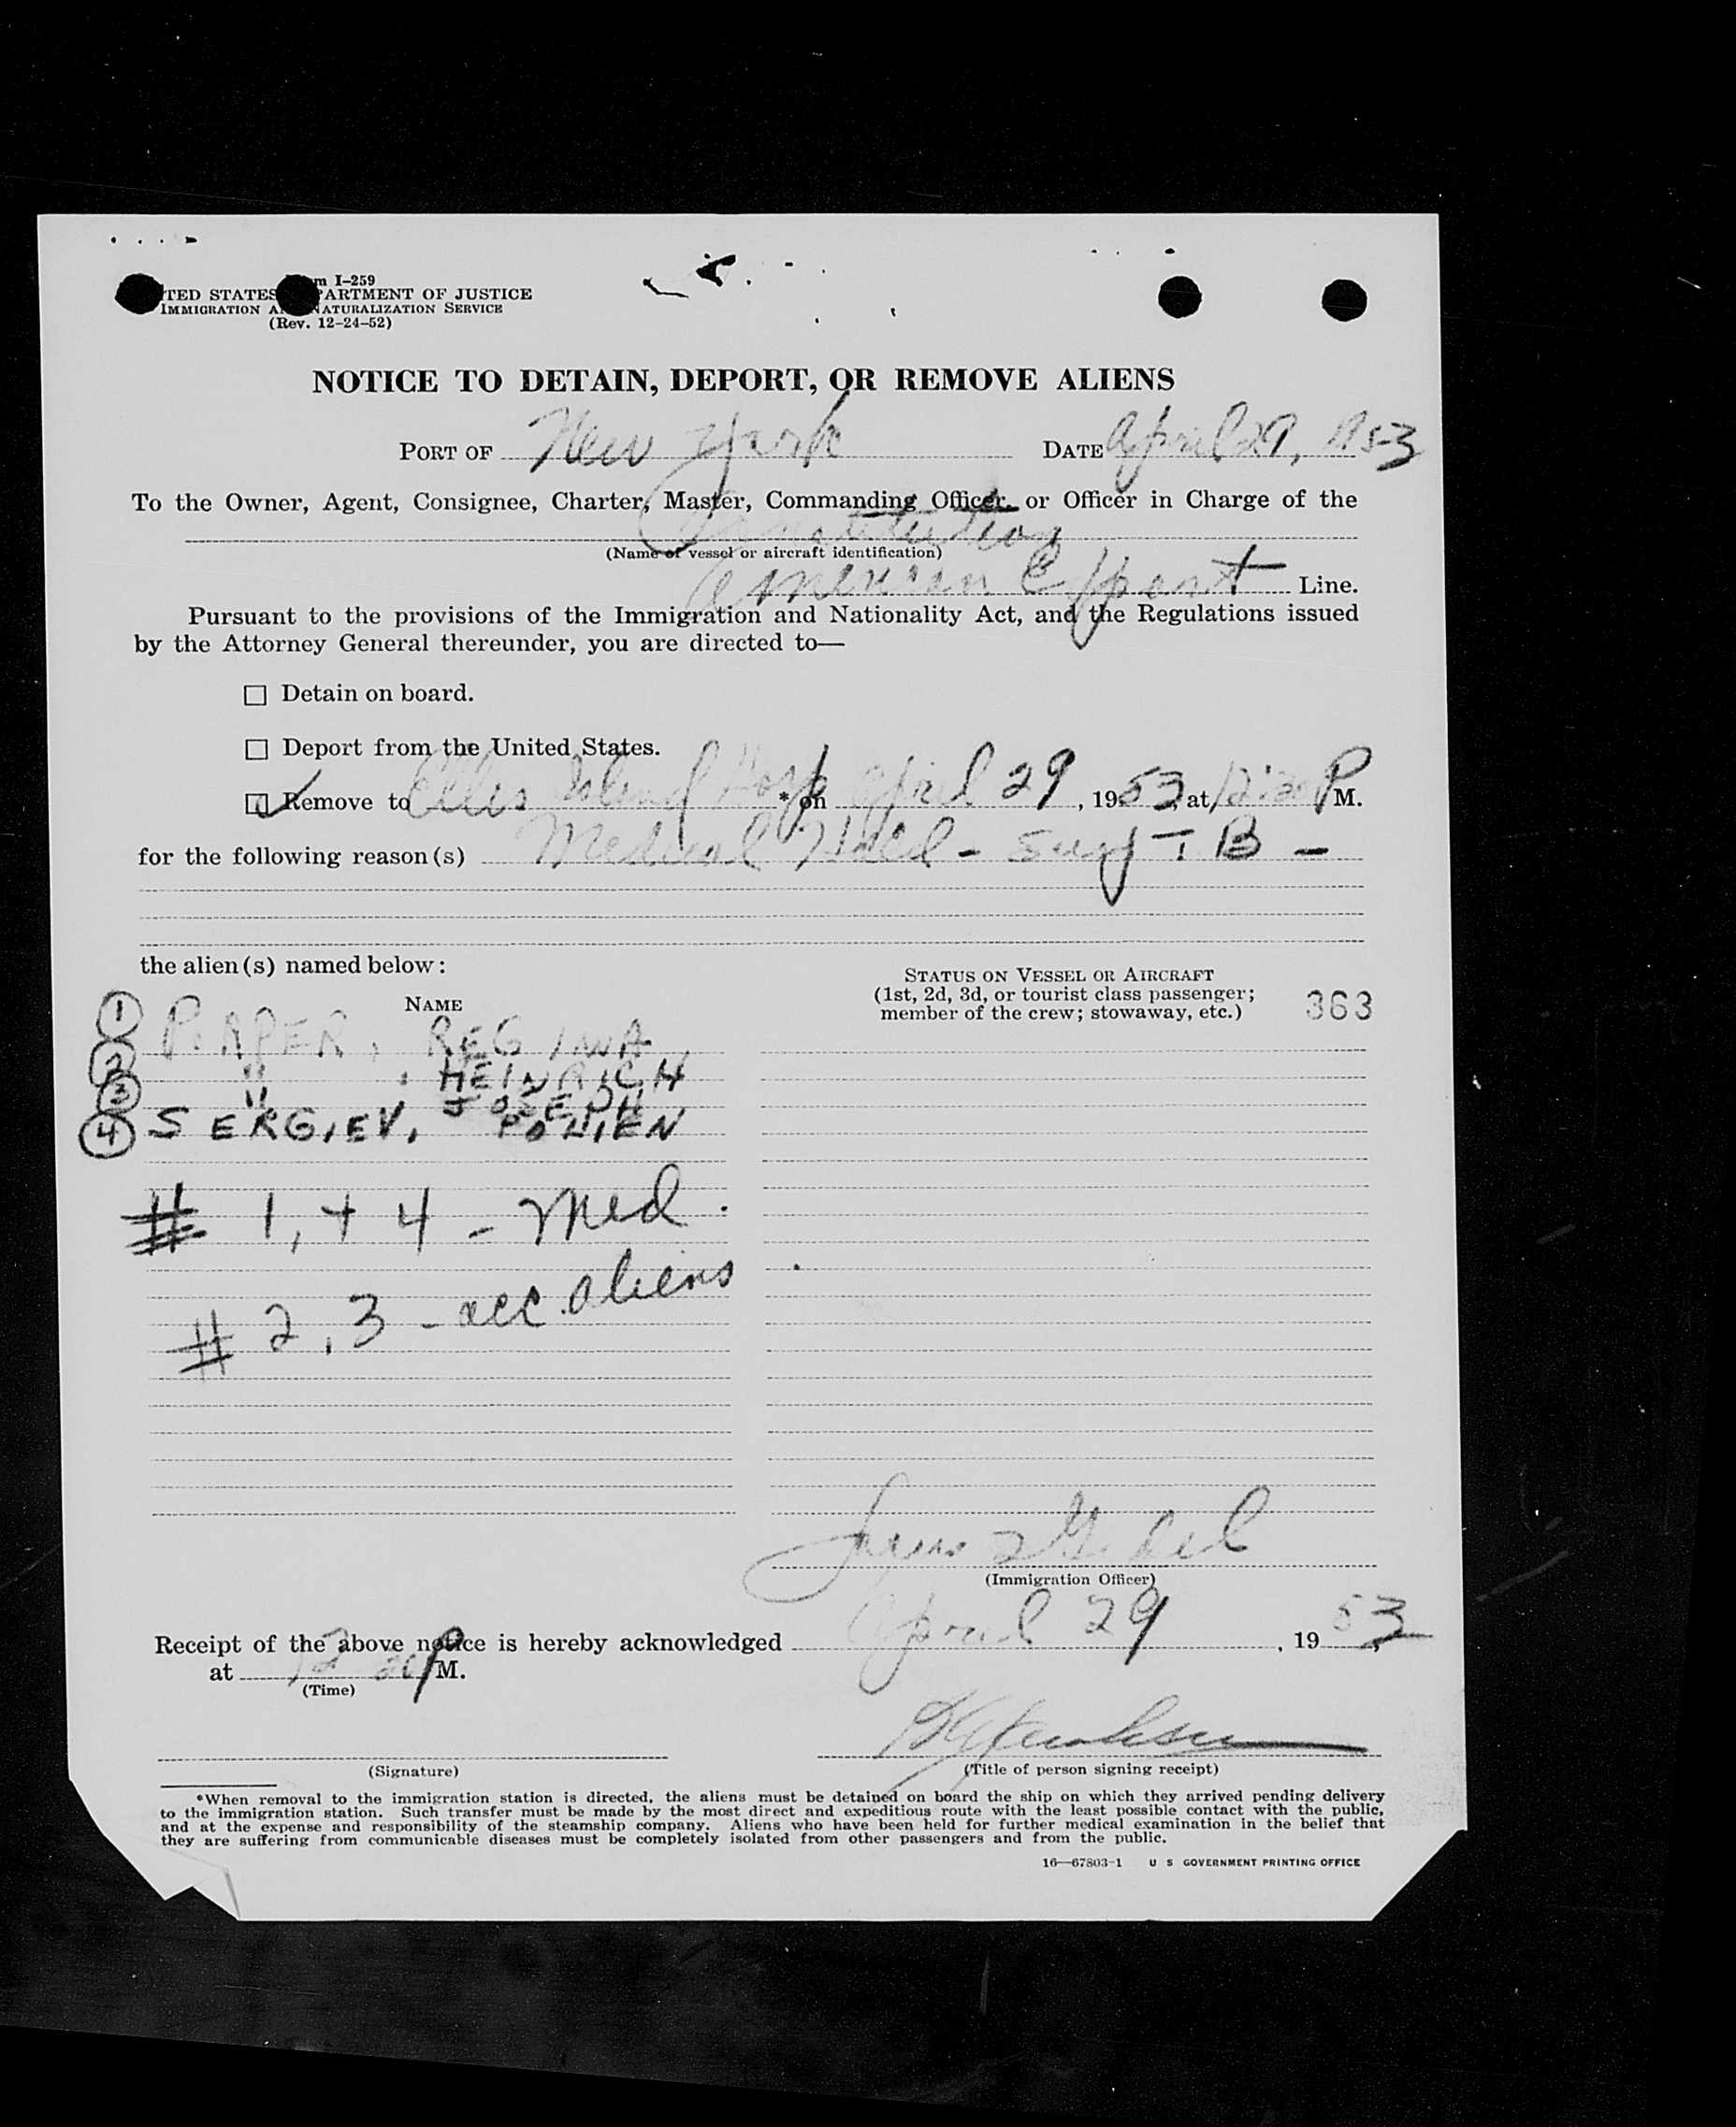 Form I-259
UNITED STATES DEPARTMENT OF JUSTICE
IMMIGRATION AND NATURALIZATION SERVICE
(Rev. 12-24-52)
NOTICE TO DETAIN, DEPORT, OR REMOVE ALIENS
PORT OF New York DATE April 29, 1953
To the Owner, Agent, Consignee, Charter, Master, Commanding Officer, or Officer in Charge of the
Constitution
(Name of vessel or aircraft identification)
American Export Line.
Pursuant to the provisions of the Immigration and Nationality Act, and the Regulations issued
by the Attorney General thereunder, you are directed to—
☐ Detain on board.
☐ Deport from the United States.
☑ Remove to Ellis Island Hosp * on April 29, 1953, at 12:30 P M.
for the following reason(s) Medical Hold - T B -
the alien(s) named below:
NAME
STATUS ON VESSEL OR AIRCRAFT
(1st, 2d, 3d, or tourist class passenger;
member of the crew; stowaway, etc.)
363
① REGINA
② " , HEINRICH
③ " JOSEPH
④ SERGIEV,
# 1, + 4 - Med.
# 2, 3 - acc. aliens
(Immigration Officer)
Receipt of the above notice is hereby acknowledged April 29, 1953,
at 12 20 P M.
(Time)
(Signature)
(Title of person signing receipt)
*When removal to the immigration station is directed, the aliens must be detained on board the ship on which they arrived pending delivery
to the immigration station. Such transfer must be made by the most direct and expeditious route with the least possible contact with the public,
and at the expense and responsibility of the steamship company. Aliens who have been held for further medical examination in the belief that
they are suffering from communicable diseases must be completely isolated from other passengers and from the public.
16—67803-1 U S GOVERNMENT PRINTING OFFICE